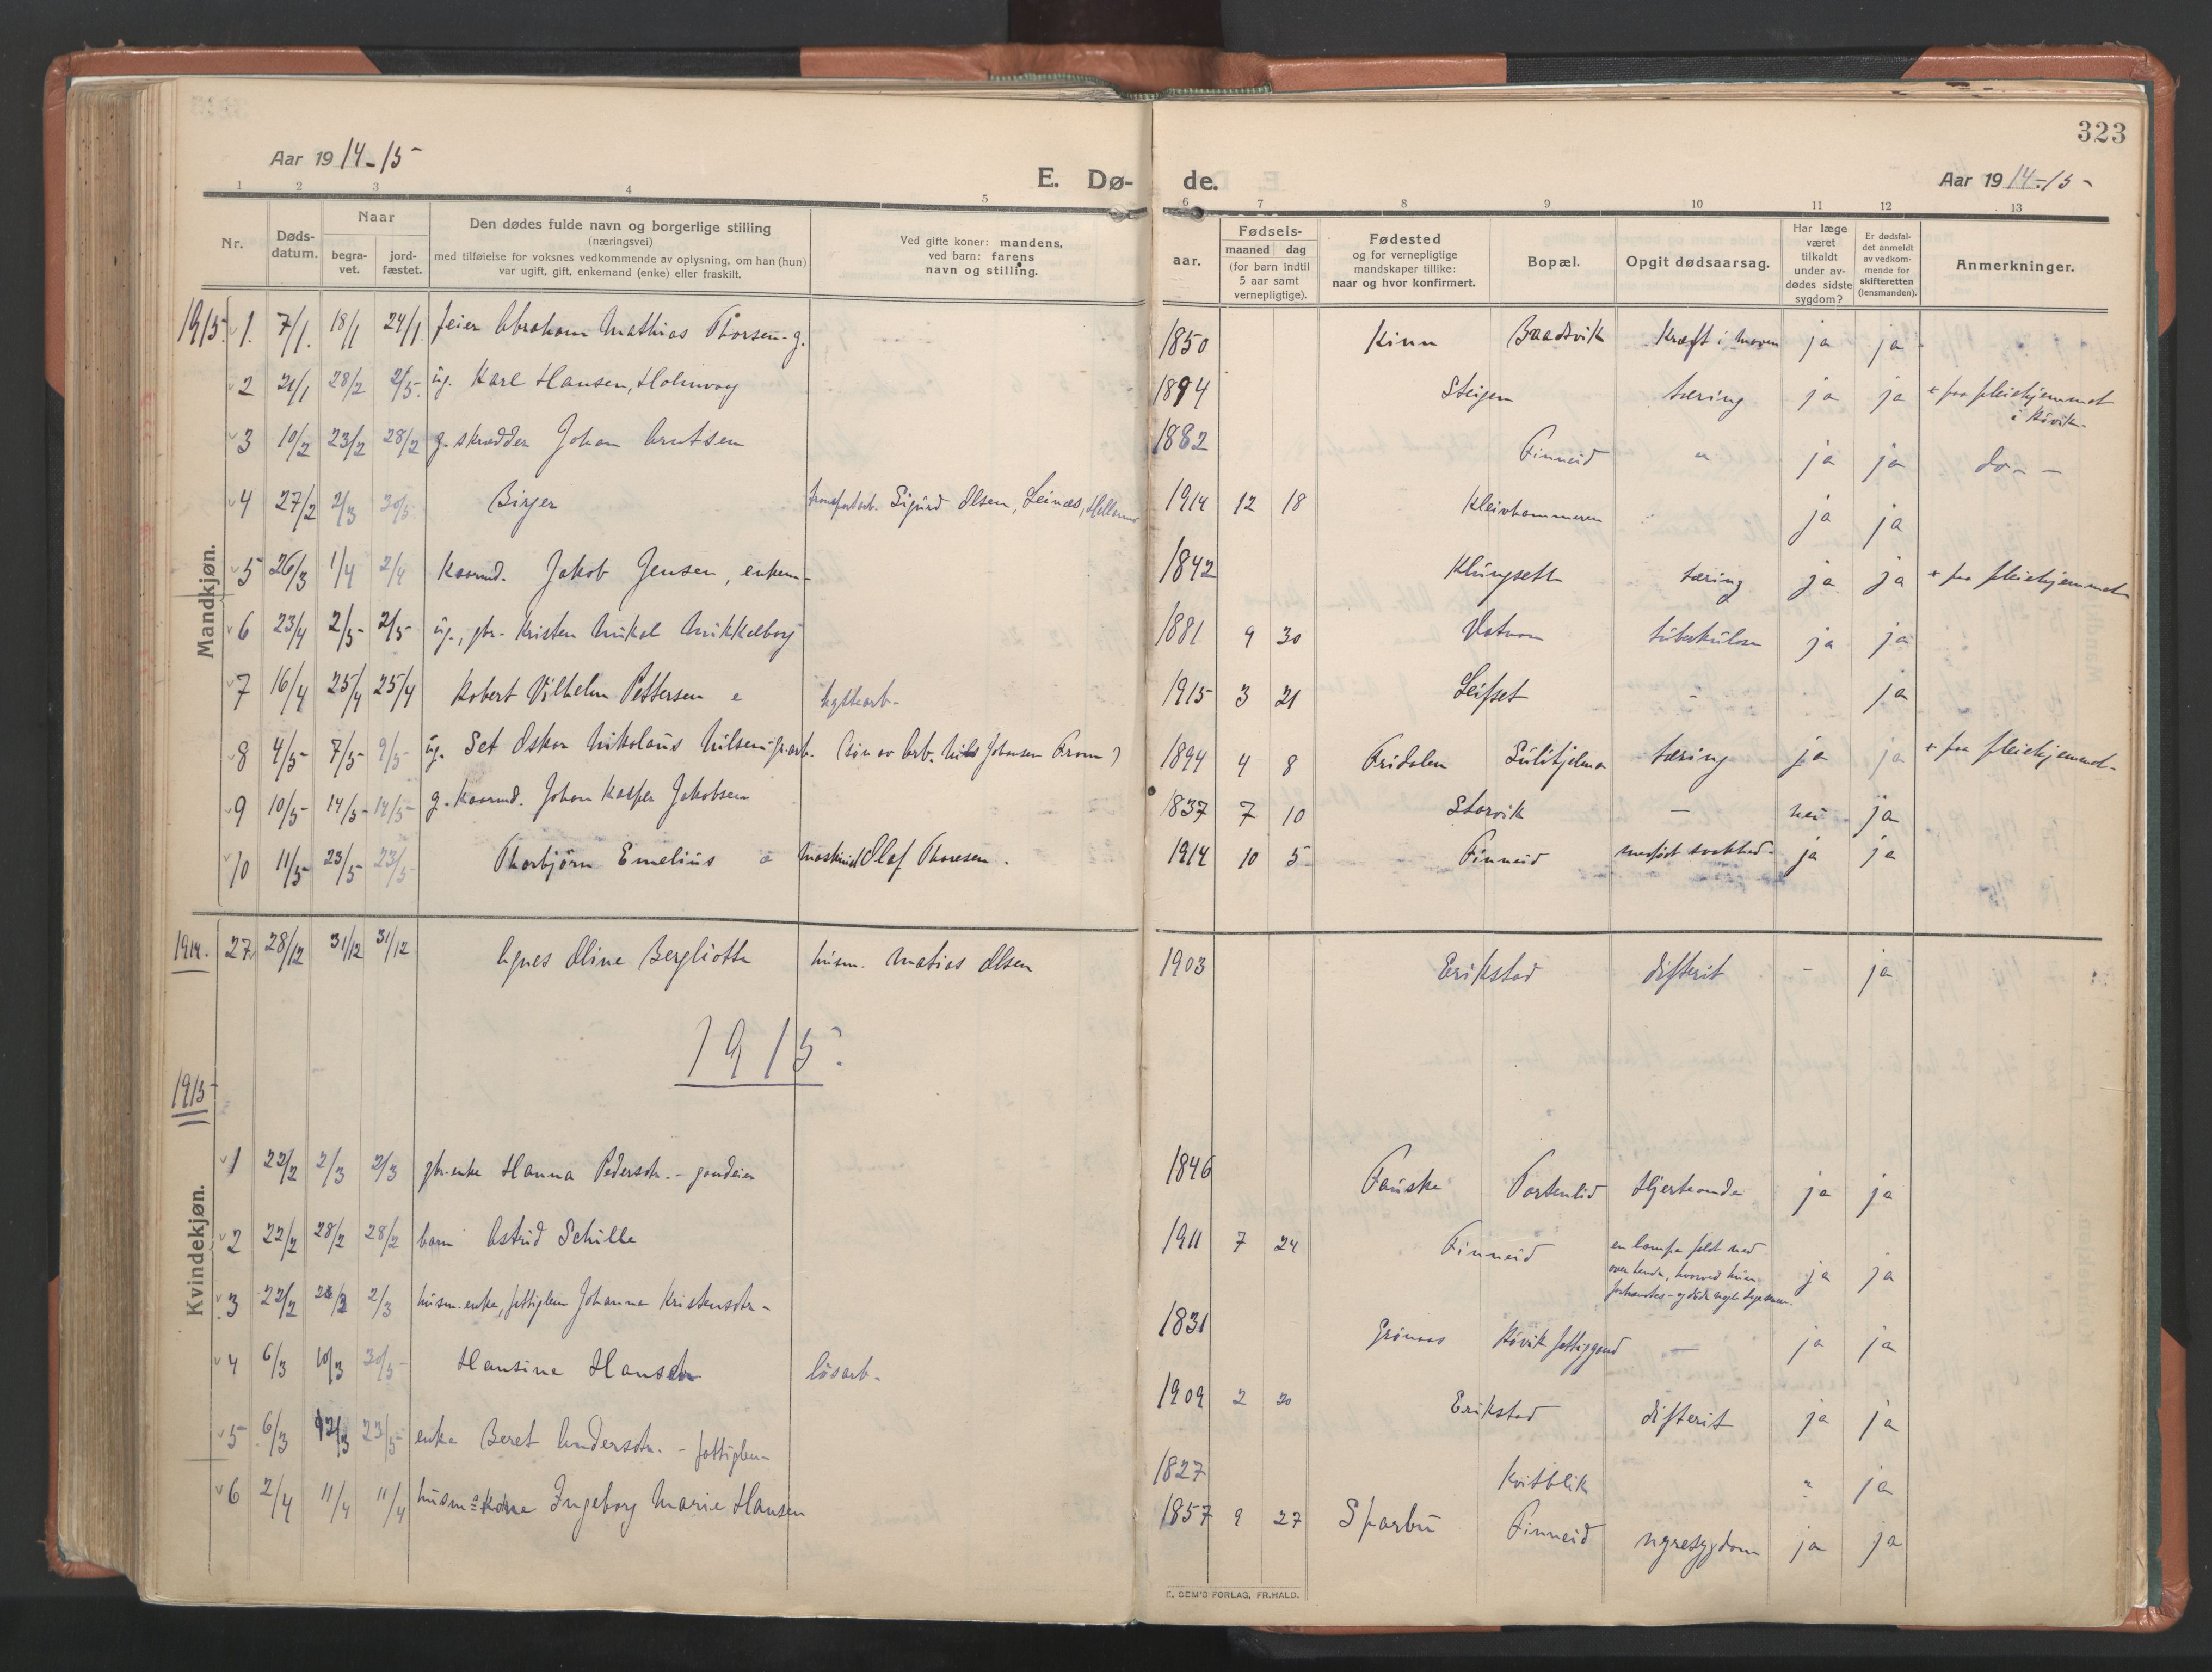 323
Aar 19 14-15
E. Dø- de.
Aar 19 14-15
1 2 3 4 5 6 7 8 9 10 11 12 13
Nr.
Døds-
datum.
Naar
begra-
vet.
jord-
fæstet.
Den dødes fulde navn og borgerlige stilling
(næringsvei)
med tilføielse for voksnes vedkommende av oplysning, om han (hun)
var ugift, gift, enkemand (enke) eller fraskilt.
Ved gifte koner: mandens,
ved barn: farens
navn og stilling.
aar.
Fødsels-
maaned dag
(for barn indtil
5 aar samt
vernepligtige).
Fødested
og for vernepligtige
mandskaper tillike:
naar og hvor konfirmert.
Bopæl.
Opgit dødsaarsag.
Har læge
været
tilkaldt
under av-
dødes sidste
sygdom?
Er dødsfal-
det anmeldt
av vedkom-
mende for
skifteretten
(lensmanden).
Anmerkninger.
Mandkjøn.
1915. 1. 7/1. 18/1 24/1. feier Abraham Mathias Thorsen - g. 1850 Kinn Baadsvik Kræft i maven ja ja
2 21/1 28/2 2/5. ug. Karl Hansen, Holmvaag 1894 Steigen tæring ja ja + paa pleiehjemmet
i Røvik.
3 10/2 23/2 28/2 g. skrædder Johan Arntsen 1882 Finneid " ja ja do - -
4 27/2 2/3 30/5 Birger Sigurd Olsen, Leinæs, 1914 12 18 Kleivhammeren ja ja
5 26/3 1/4 2/4 Kaarmd. Jakob Jensen, enkem- 1842 Klungsett tæring ja ja + paa pleiehjemmet
6 23/4 2/5 2/5 ug., gbr. Kristen Mikal Mikkelborg 1881 9 30 Vatnan tuberkulose ja ja
7 16/4 25/4 25/4 Robert Vilhelm Pettersen e hyttearb. 1915 3 21 Leifset - ja
8 4/5 7/5 9/5 ug. Set Oskar Nikolaus Nilsen - gr.arb. (søn av Arb. Nils Johansen From) 1894 4 8 Fridalen Sulitjelma tæring ja ja + paa pleiehjemmet
9 10/5 14/5 14/5 g. kaarmd. Johan Kasper Jakobsen 1837 7 10 Storvik - nei ja
10 11/5 23/5 23/5 Thorbjørn Emelius e Maskinist Olaf Thoresen. 1914 10 5 Finneid medfødt svakhed. ja ja
1914. 27. 28/12 31/12 31/12 Agnes Oline Bergliotte husm. Matias Olsen 1903 Erikstad difterit - ja
1915.
Kvindekjøn.
1915
1 22/2 2/3 2/3 gbr.enke Hanna Pedersdtr. - 1846 Fauske Tortenlid Hjerteonde ja ja
2 22/2 28/2 28/2 barn Astrid Schille 1911 7 24 Finneid en lampe faldt ned
over hende, hvorved hun
forbrændtes - og døde nogle dage senere. ja ja
3 22/2 28/2 2/3 husm.enke, fattiglem Johanna Kristensdtr. - 1831 Grønaas Røvik fattiggaard - ja ja
4 6/3 10/3 30/5 Hansine Hansen løsarb. 1909 2 20 Erikstad difterit ja ja
5 6/3 12/3 23/5 enke Beret Andersdtr. - fattiglem - 1827 Kvitblik " ja
6 2/4 11/4 11/4 husm.kone Ingeborg Marie Hansen 1857 9 27 Sparbu Finneid nyresygdom ja ja
E. SEM'S FORLAG, FR.HALD.